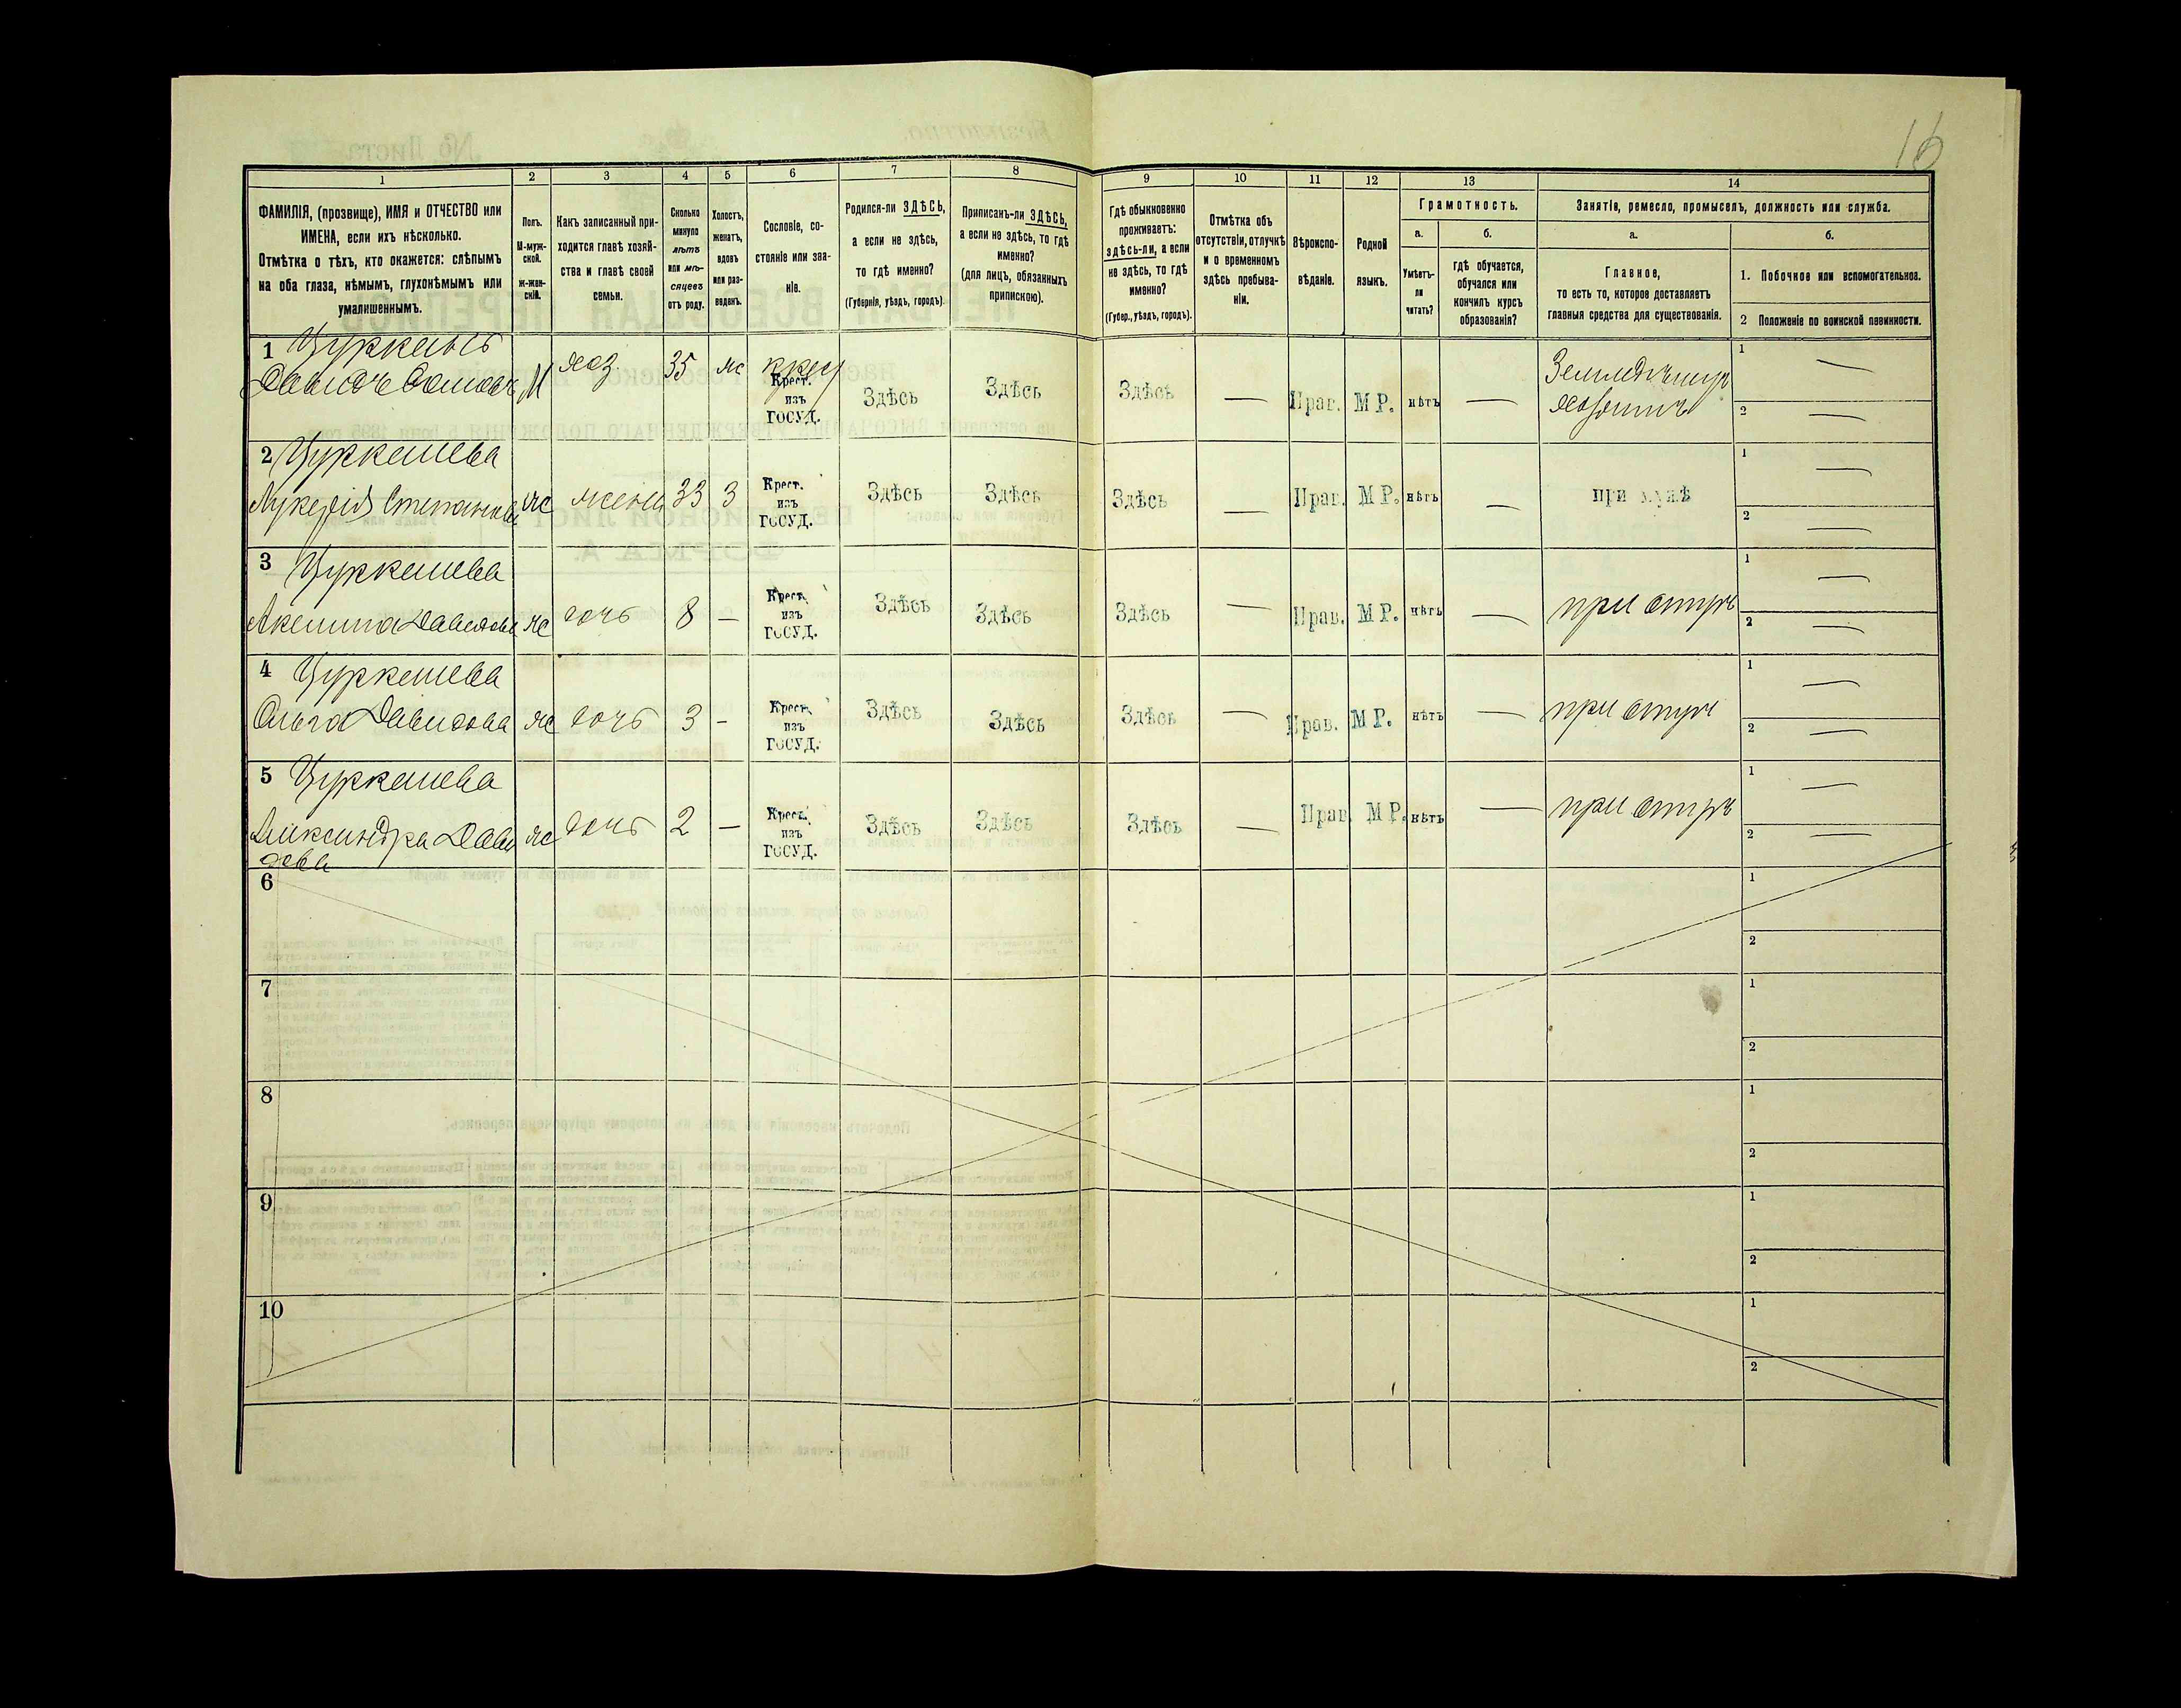 16
1
2
3
4
5
6
7
8
9
10
11
12
13
14
ФАМИЛІЯ, (прозвище), ИМЯ и ОТЧЕСТВО или
ИМЕНА, если ихъ нѣсколько.
Отмѣтка о тѣхъ, кто окажется: слѣпымъ
на оба глаза, нѣмымъ, глухонѣмымъ или
умалишеннымъ.
Полъ.
М-муж-
ской.
Ж-жен-
скій.
Какъ записанный при-
ходится главѣ хозяй-
ства и главѣ своей
семьи.
Сколько
минуло
лѣтъ
или мѣ-
сяцевъ
отъ роду.
Холостъ,
женатъ,
вдовъ
или раз-
веденъ.
Сословіе, со-
стояніе или зва-
ніе.
Родился-ли ЗДѢСЬ,
а если не здѣсь,
то гдѣ именно?
(Губернія, уѣздъ, городъ).
Приписанъ-ли ЗДѢСЬ,
а если не здѣсь, то гдѣ
именно?
(для лицъ, обязанныхъ
припискою).
Гдѣ обыкновенно
проживаетъ:
здѣсь-ли, а если
не здѣсь, то гдѣ
именно?
(Губер., уѣздъ, городъ).
Отмѣтка объ
отсутствіи, отлучкѣ
и о временномъ
здѣсь пребыва-
ніи.
Вѣроиспо-
вѣданіе.
Родной
языкъ.
Грамотность.
а.
Умѣетъ-
ли
читать?
б.
гдѣ обучается,
обучался или
кончилъ курсъ
образованія?
Занятіе, ремесло, промыселъ, должность или служба.
а.
Главное,
то есть то, которое доставляетъ
главныя средства для существованія.
б.
1. Побочное или вспомогательное.
2 Положеніе по воинской повинности.
1
Давидъ М хоз. 35 ж крест
Крест.
изъ
ГОСУД.
Здѣсь Здѣсь Здѣсь — Прав. М Р. нѣтъ —
хозяинъ
1 —
2 —
2 Цуркашева
Лукерія Степанова ж жена 33 З
Крест.
изъ
ГОСУД.
Здѣсь Здѣсь Здѣсь — Прав. М Р. нѣтъ — при мужѣ
1 —
2 —
3 Цуркашева
Акелина Давидова ж дочь 8 —
Крест.
изъ
ГОСУД.
Здѣсь Здѣсь Здѣсь — Прав. М Р. нѣтъ — при отцѣ
1 —
2 —
4 Цуркашева
Ольга Давидова ж дочь 3 -
Крест.
изъ
ГОСУД.
Здѣсь Здѣсь Здѣсь — Прав. М Р. нѣтъ — при отцѣ
1 —
2 —
5 Цуркашева
Александра Дави
дова ж дочь 2 —
Крест.
изъ
ГОСУД.
Здѣсь Здѣсь Здѣсь — Прав. М Р. нѣтъ — при отцѣ
1 —
2 —
6
1
2
7
1
2
8
1
2
9
1
2
10
1
2